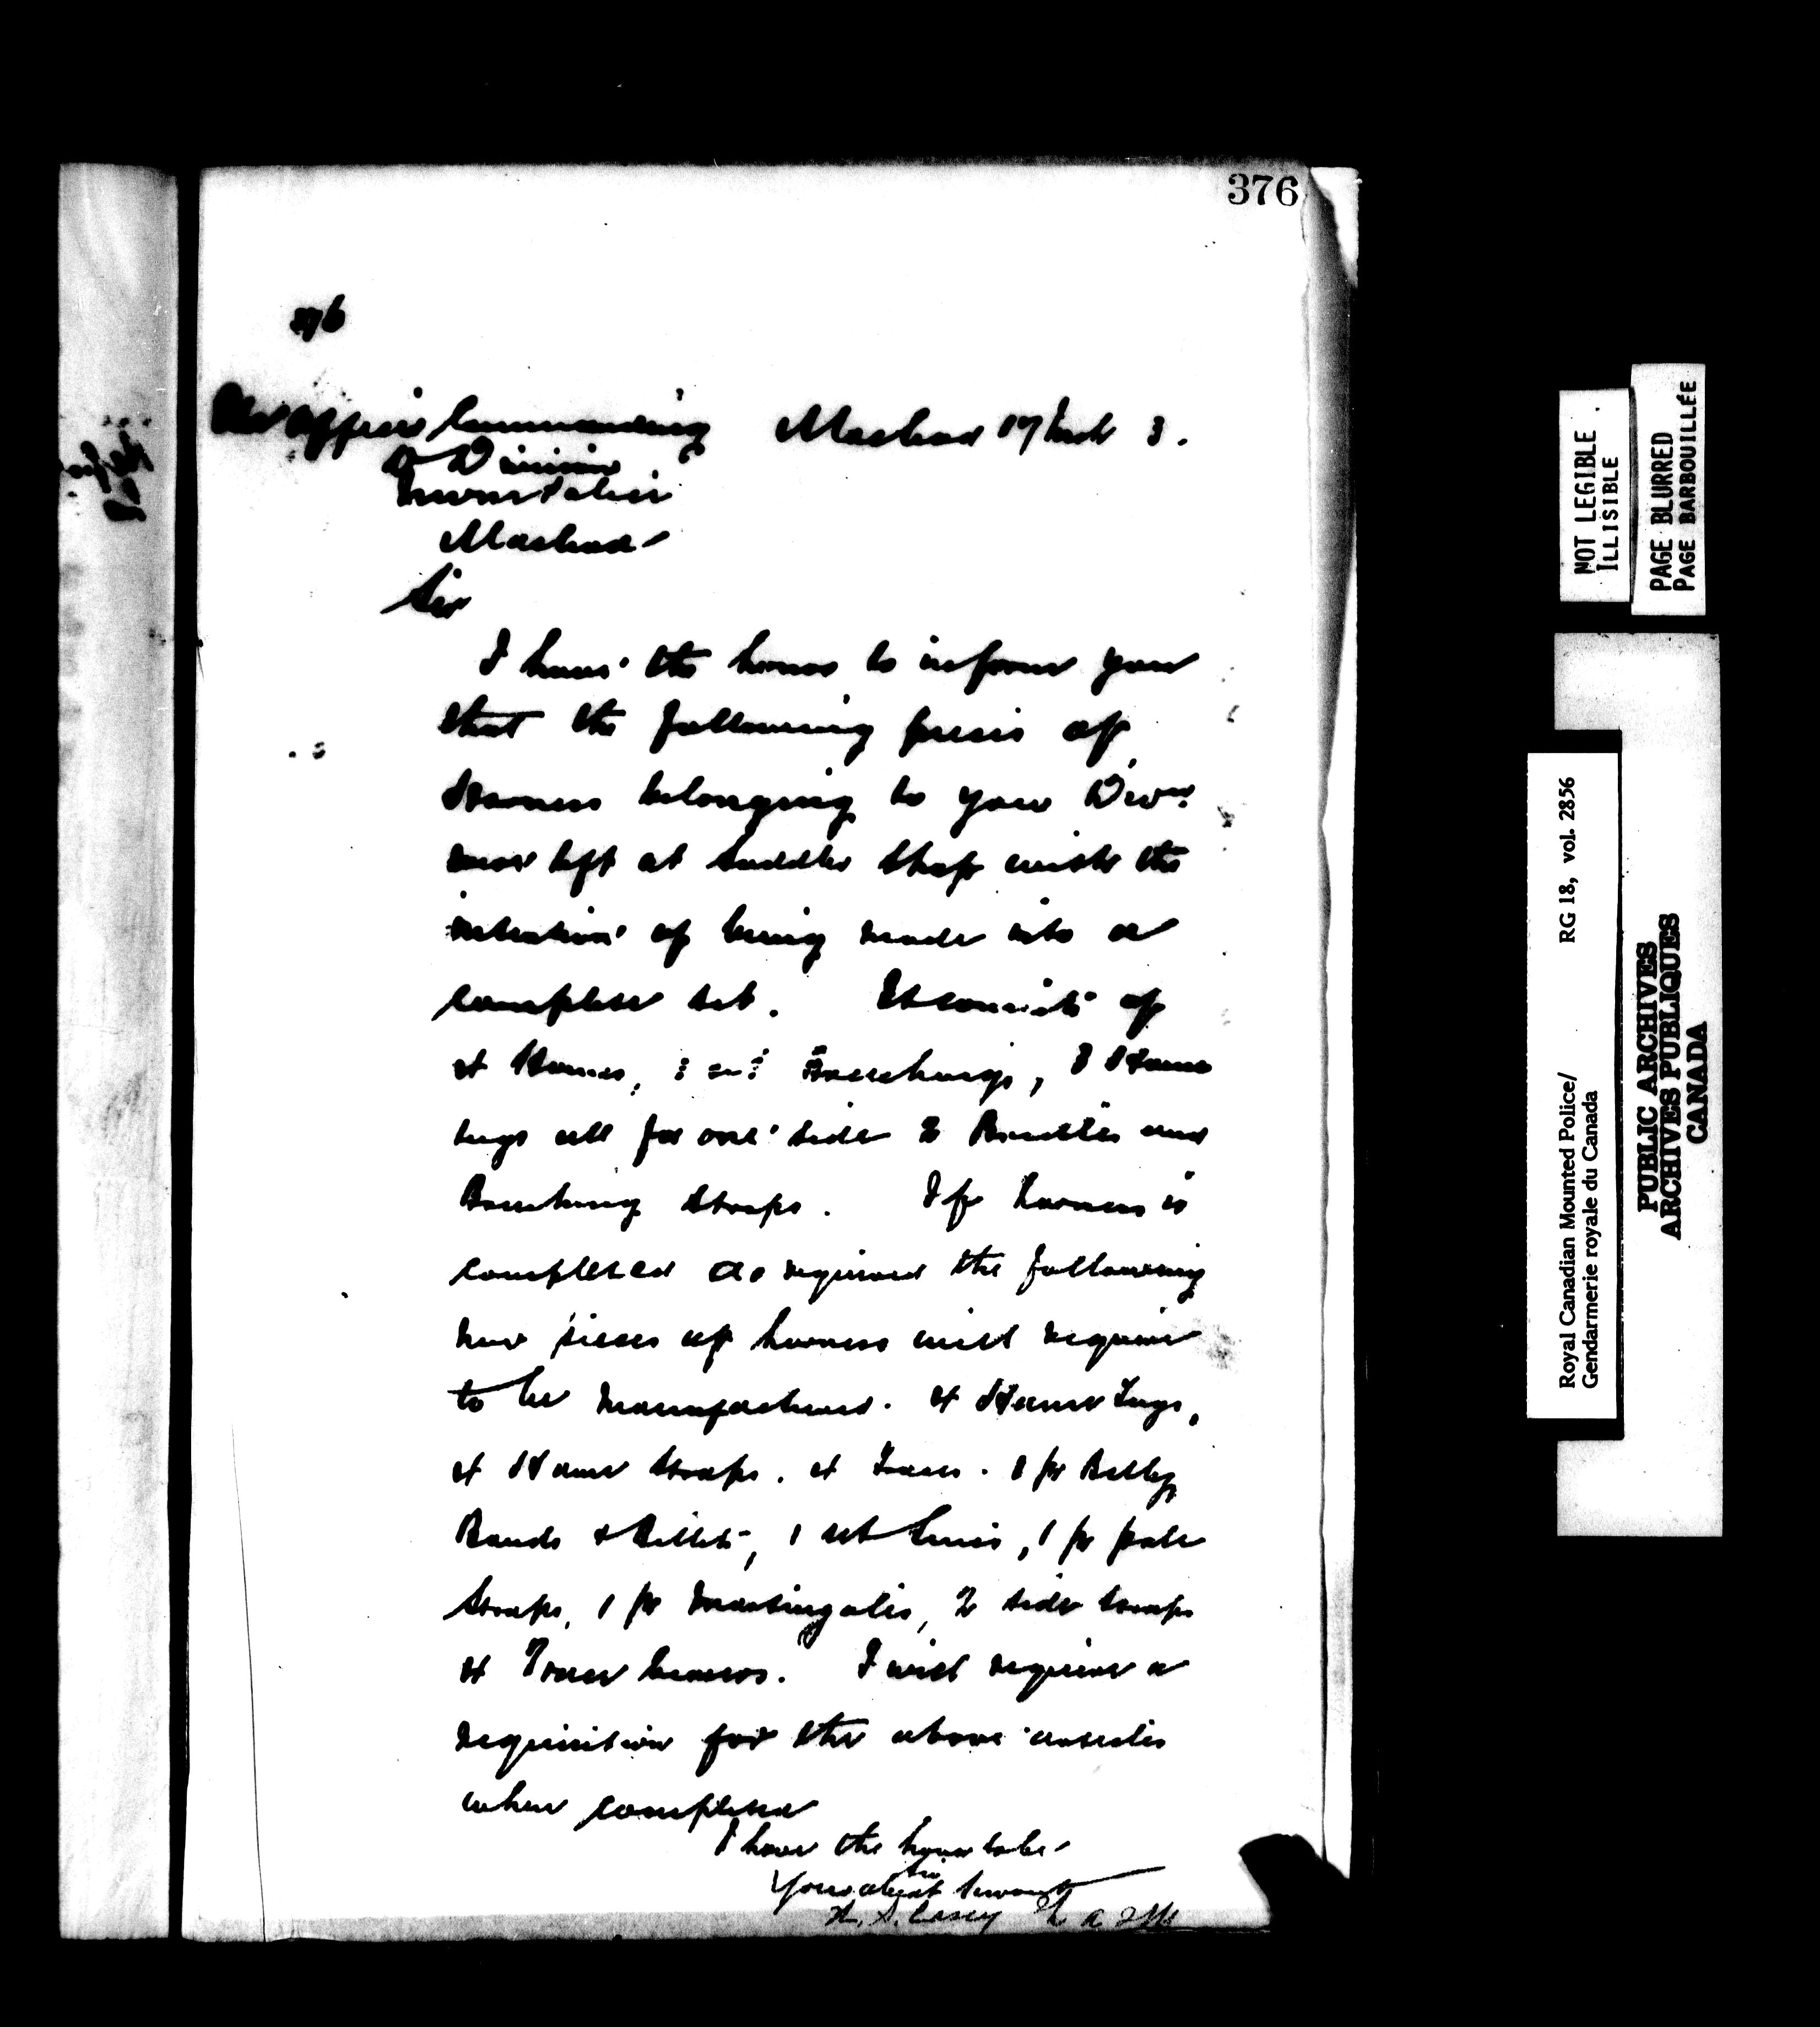 376
376
The Officer Commanding Macleod 17 March 3.
D Division
Macleod
Sir
I have the honor to inform you
that the following pieces of
Harness belonging to your Divn
was left at Saddler Shop with the
intention of being made into a
complete set. It consists of
4 Hames, Breechings, Hame
tugs all for one side 2 Bridles and
Breeching Straps. If harness is
completed as required the following
new pieces of harness will require
to be manufactured. 4 Hame Tugs,
4 Hame Straps. 4 Traces. 1 pr Belly
Bands & Billets, 1 set Lines, 1 pr pole
Straps, 1 pr Martingales, 2 side straps
4 Trace. I will require a
requisition for the above articles
when completed
I have the honor to be
Sir
Your obedt Servant
NOT LEGIBLE
ILLISIBLE
PAGE BLURRED
PAGE BARBOUILLÉE
Royal Canadian Mounted Police/ RG 18, vol. 2856
Gendarmerie royale du Canada
PUBLIC ARCHIVES
ARCHIVES PUBLIQUES
CANADA